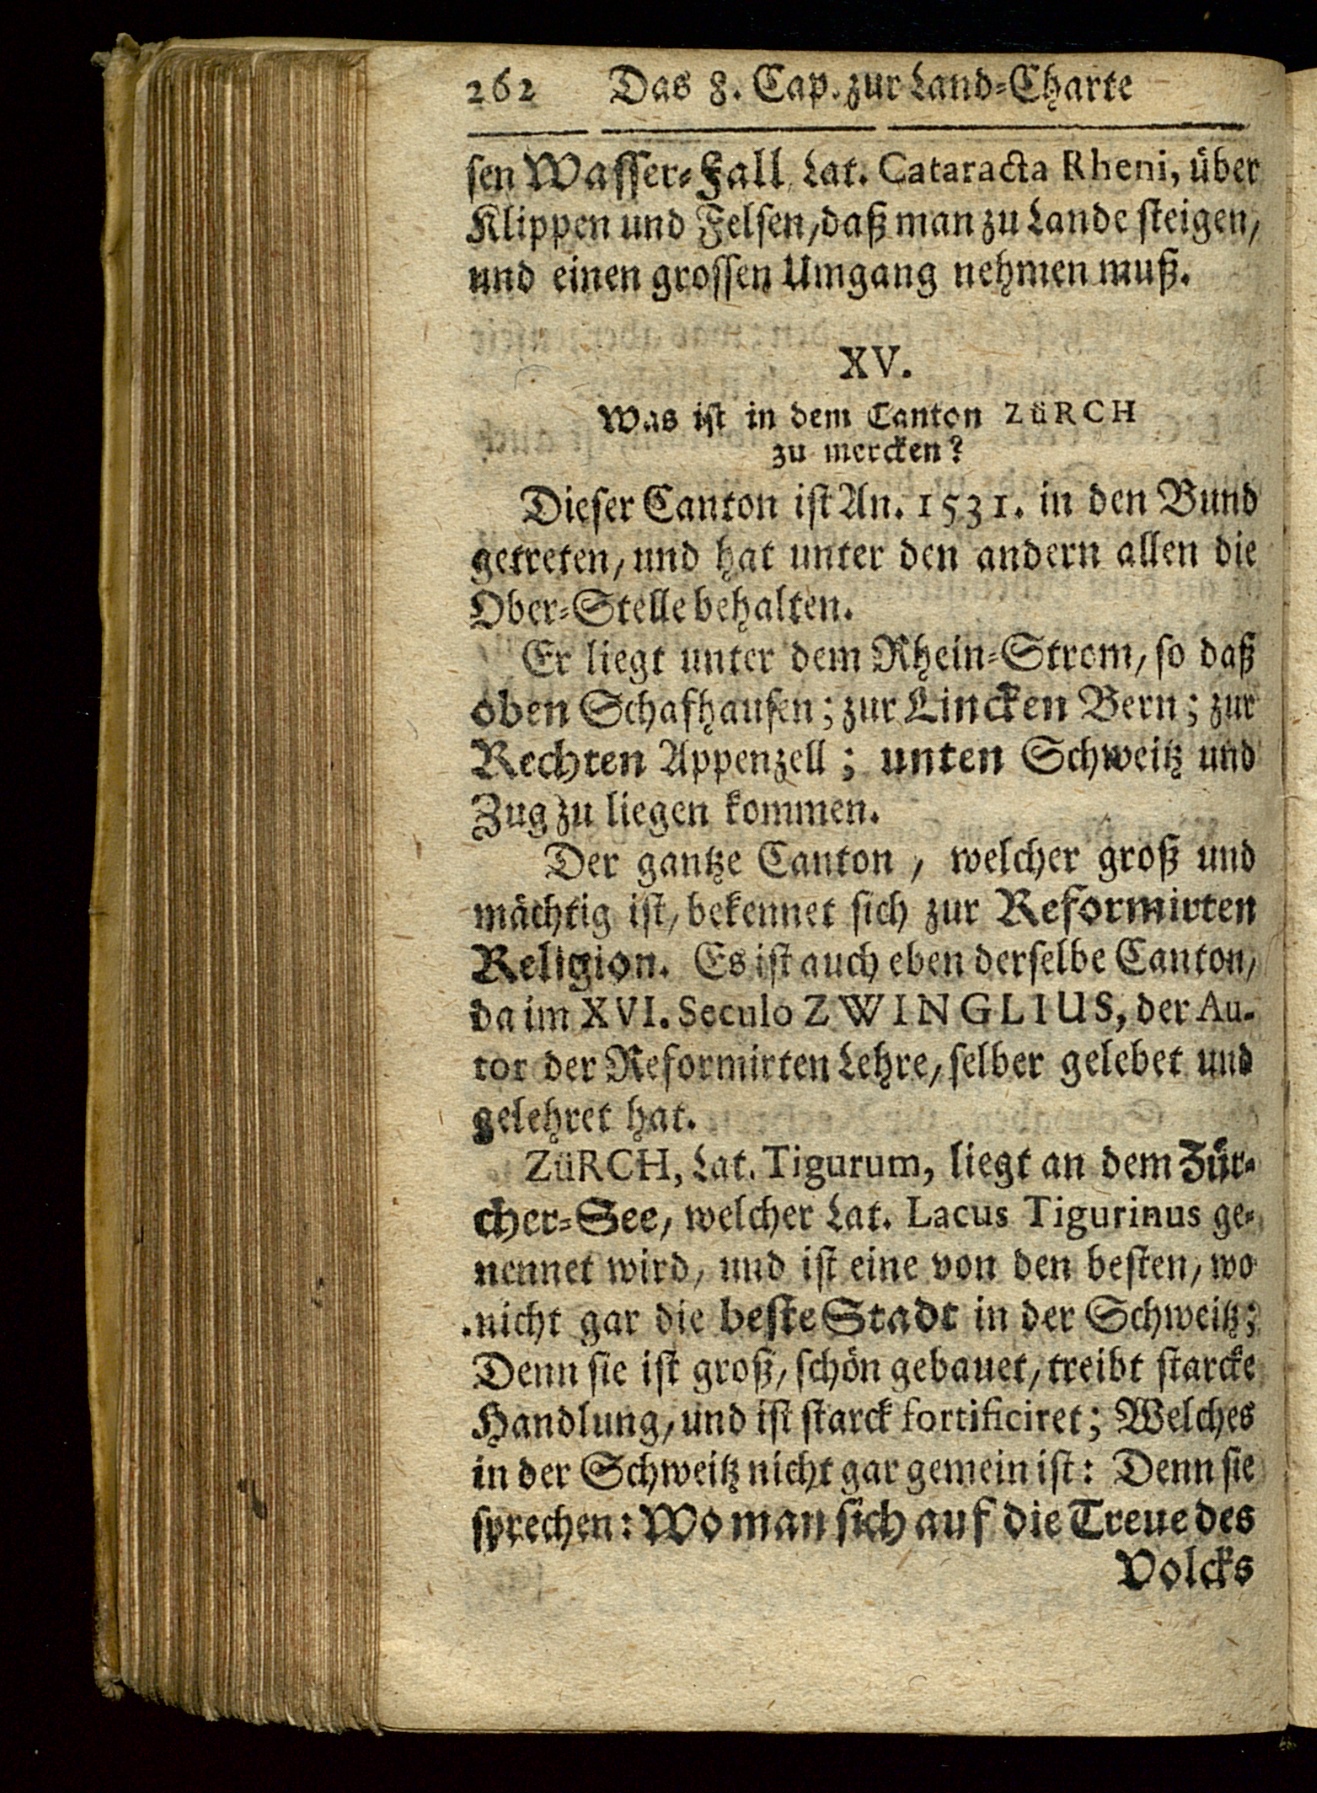 262 Das 8. Cap. zur Land-Charte
sen Wasser-Fall Lat. Cataracta Rheni, über
Klippen und Felsen, daß man zu Lande steigen,
und einen grossen Umgang nehmen muß.
XV.
Was ist in dem Canton ZüRCH
zu mercken?
Dieser Canton ist An. 1531. in den Bund
getreten, und hat unter den andern allen die
Ober-Stelle behalten.
Er liegt unter dem Rhein-Strom, so daß
oben Schafhausen; zur Lincken Bern; zur
Rechten Appenzell; unten Schweitz und
Zug zu liegen kommen.
Der gantze Canton, welcher groß und
mächtig ist, bekennet sich zur Reformirten
Religion. Es ist auch eben derselbe Canton,
da im XVI. Seculo ZWINGLIUS, der Au-
tor der Reformirten Lehre, selber gelebet und
gelehret hat.
ZüRCH, Lat. Tigurum, liegt an dem Zür-
cher-See, welcher Lat. Lacus Tigurinus ge-
nennet wird, und ist eine von den besten, wo
nicht gar die beste Stadt in der Schweitz;
Denn sie ist groß, schön gebauet, treibt starcke
Handlung, und ist starck fortificiret; Welches
in der Schweitz nicht gar gemein ist: Denn sie
sprechen: Wo man sich auf die Treue des
Volcks